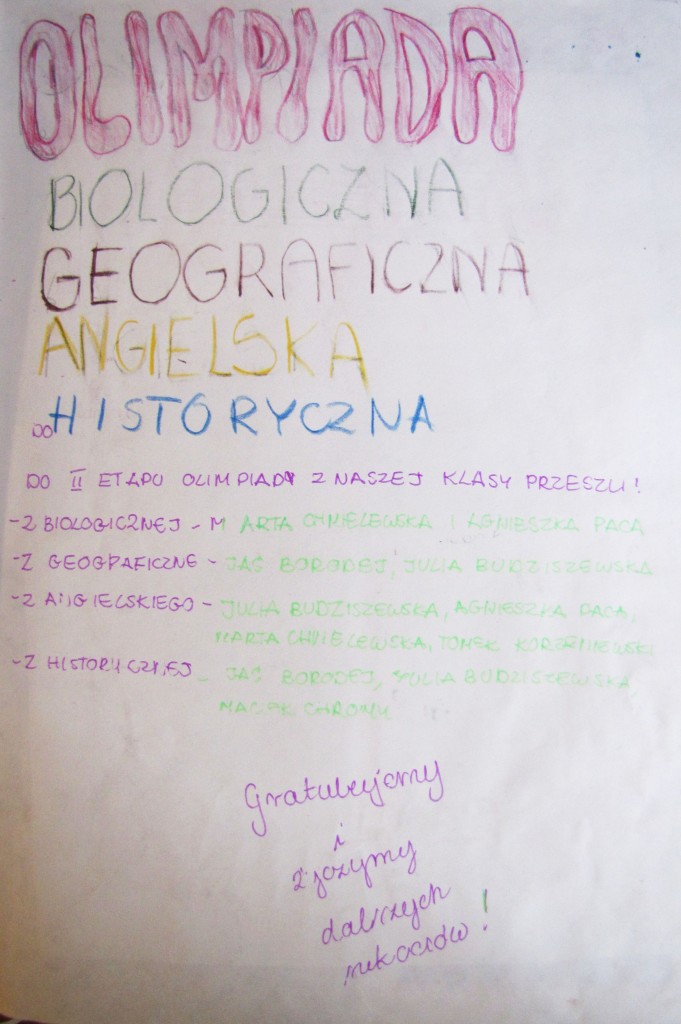 OLIMPIADA
BIOLOGICZNA
GEOGRAFICZNA
ANGIELSKA
DO HISTORYCZNA
DO II ETAPU OLIMPIADY Z NASZEJ KLASY PRZESZLI!
-Z BIOLOGICZNEJ - MARTA CHMIELEWSKA I AGNIESZKA PACA
-Z GEOGRAFICZNE - JAŚ BORODEJ, JULIA BUDZISZEWSKA
-Z ANGIELSKIEGO - JULIA BUDZISZEWSKA, AGNIESZKA PACA,
MARTA CHMIELEWSKA, TOMEK KORZENIEWSKI
-Z HISTORYCZNEJ - JAŚ BORODEJ, JULIA BUDZISZEWSKA,
MACIEK CHROMY
Gratulujemy
i
życzymy
dalszych
sukcesów!